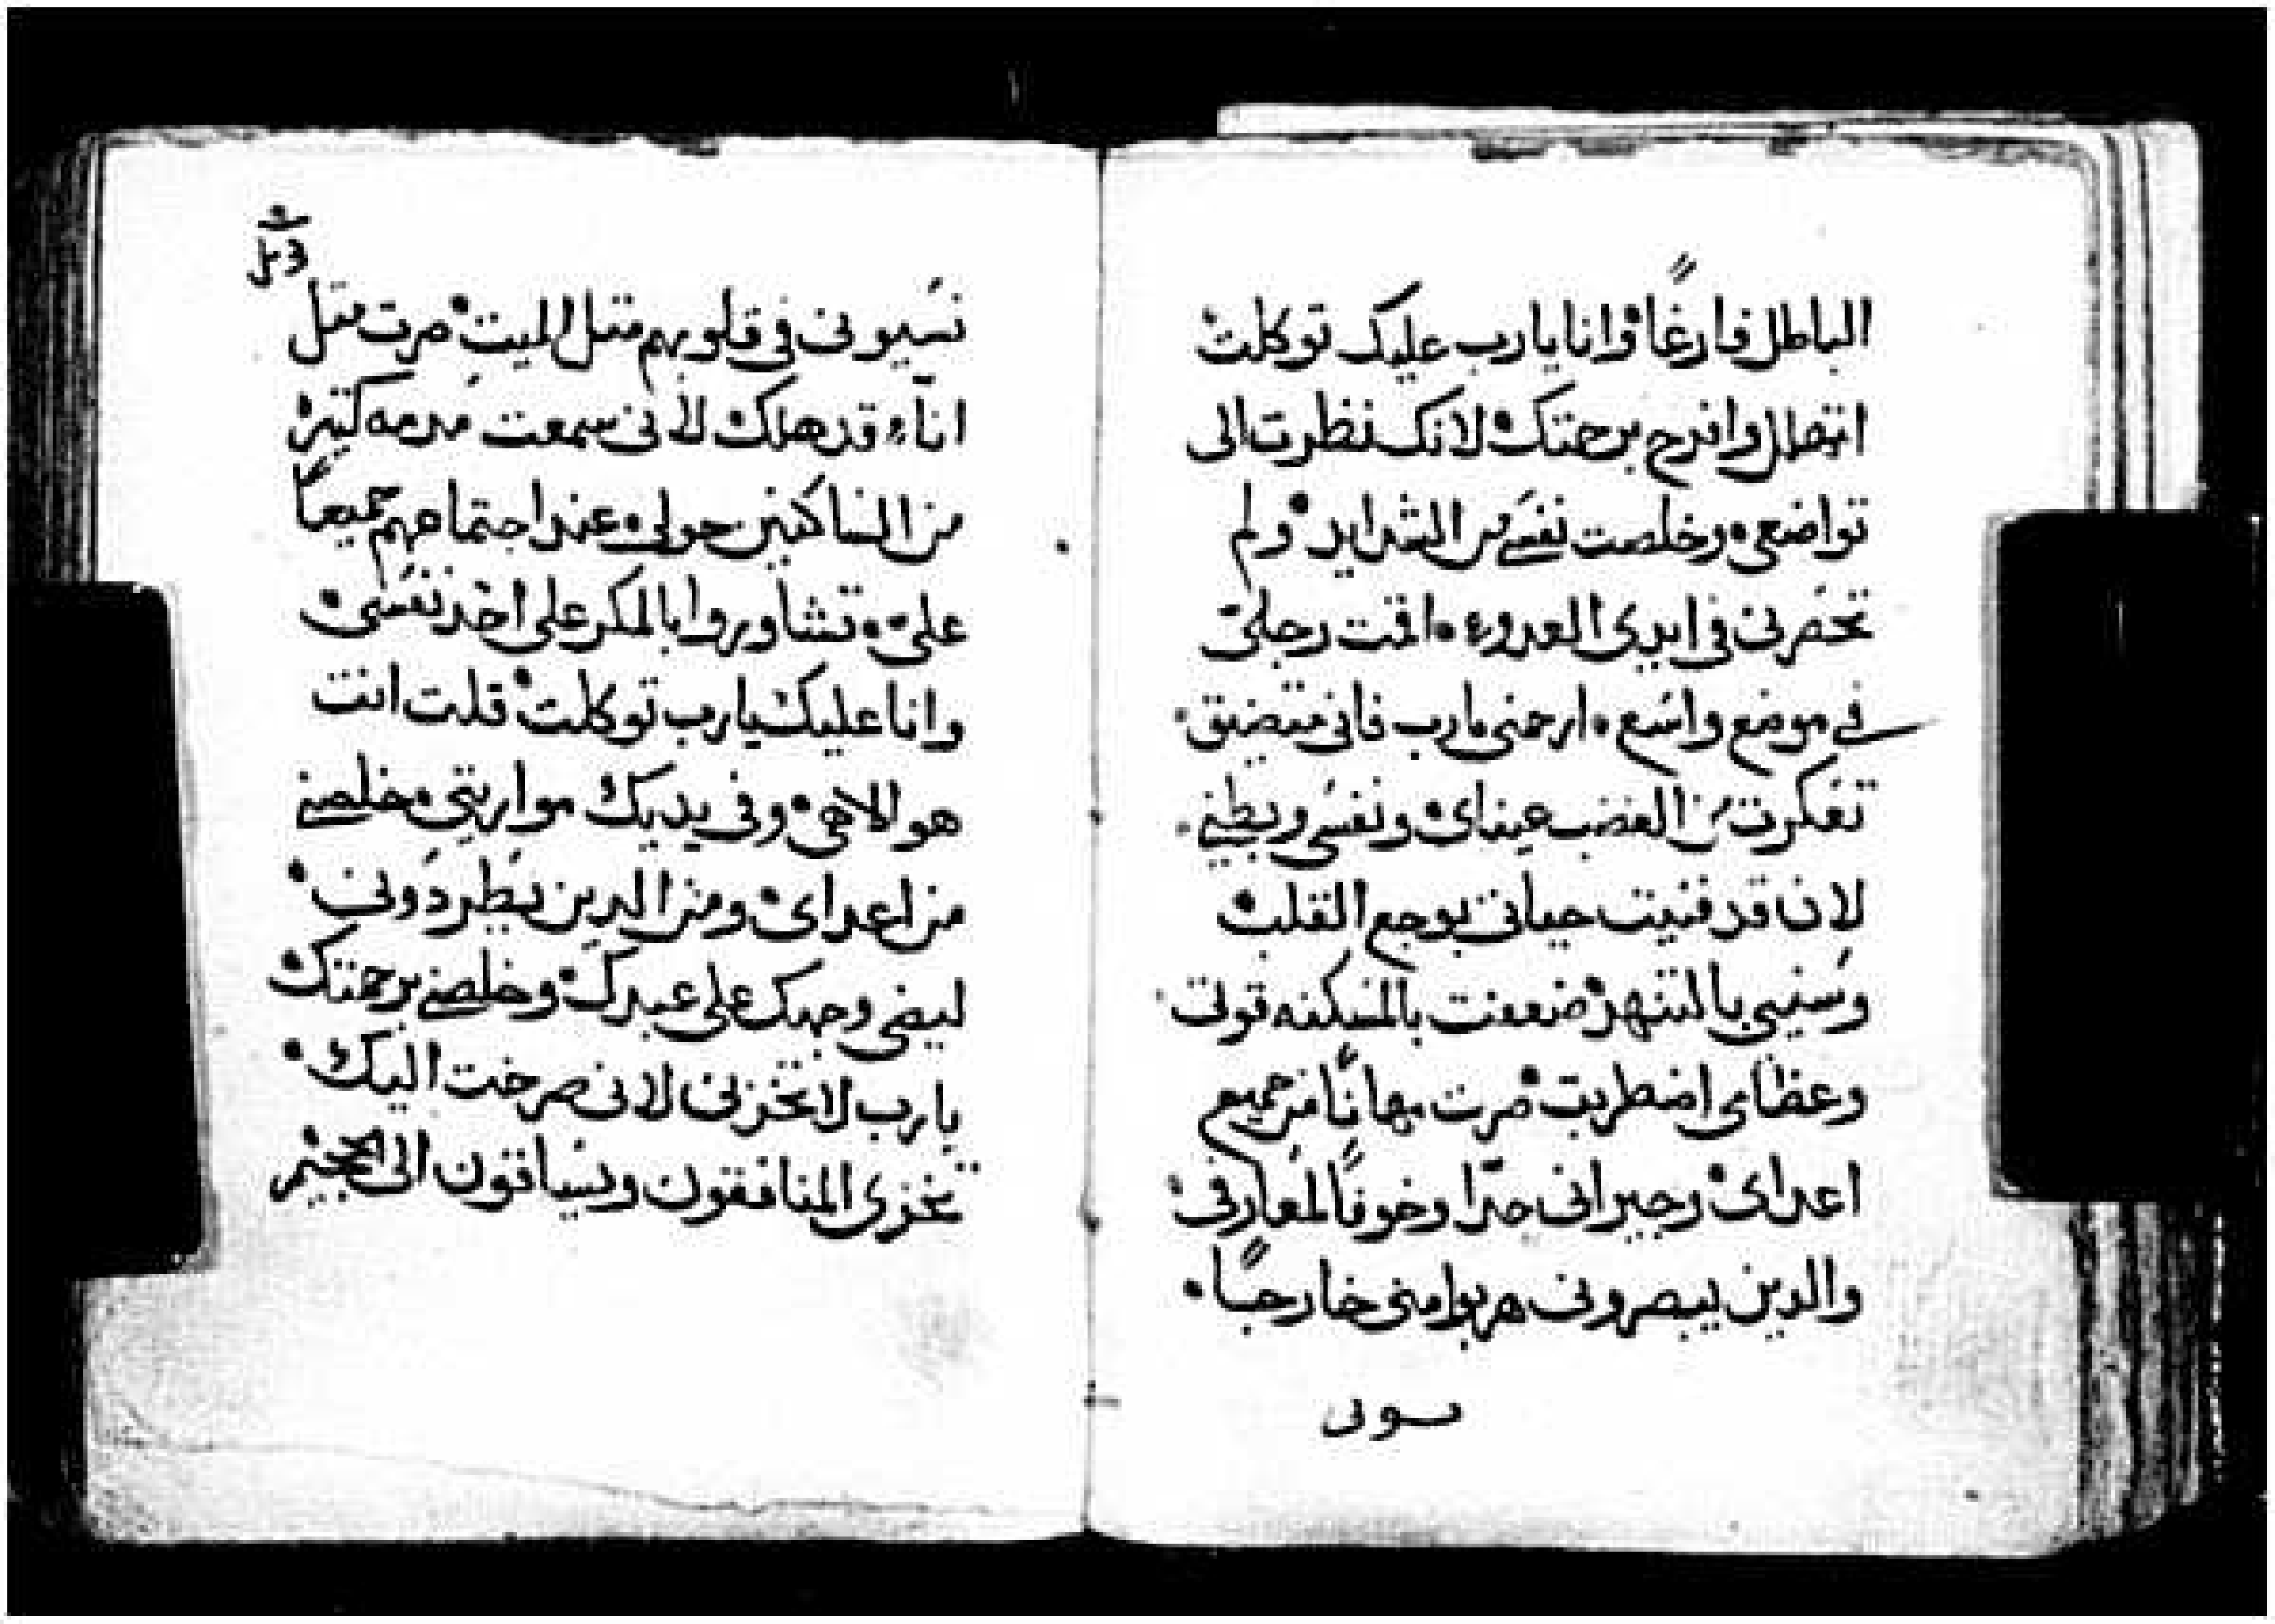 الباطل فارغًا وانا يارب عليك توكلت
اتهلل وافرح برحمتك لانك نظرت الى
تواضعى وخلصت نفسى من الشدايد ولم
تحصرنى فى ايدى العدو اقمت رجلىّ
فى موضع واسع ارحمنى يارب فانى متضيق
تعكرت من الغضب عيناى ونفسى وبطنى
لان قد فنيت حياتى بوجع القلب
وسنينى بالتنهد ضعفت بالمسكنه قوتى
وعظامى اضطربت صرت مهانًا من جميع
اعداى وجيرانى جدًا وخوفًا لمعارفى
والدين يبصرونى هربوا منى خارجًا
سونى
نسيونى فى قلوبهم متل الميت صرت متل
اناء قد هلك لانى سمعت مدمه كتيره
من الساكنين حولى عند اجتماعهم جميعًا
علىّ تشاوروا بالمكر على اخد نفسى
وانا عليك يارب توكلت قلت انت
هو الاهى وفى يديك مواريتى خلصنى
من اعداى ومن الدين يطردونى
ليضى وجهك على عبدك وخلصنى برحمتك
يارب لا تخزنى لانى صرخت اليك
تخزى المنافقون ويساقون الى الجحيم